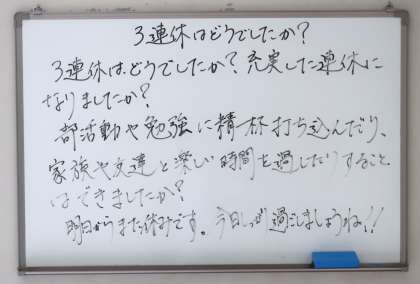 3連休はどうでしたか?
3連休は、どうでしたか?充実した連休に
なりましたか?
部活動や勉強に精一杯打ち込んだり、
家族や友達と楽しい時間を過したりすること
はできましたか?
明日からまた休みです。今日しっかり過ごしましょうね!!